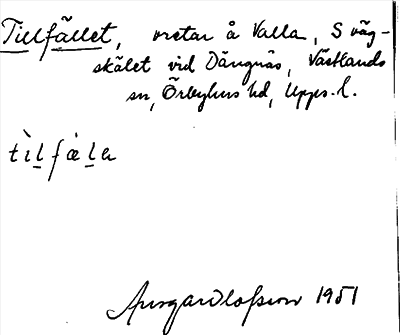 Tillfället, vretar å Valla, S väg-
skälet vid Dängnäs, Västlands
sn, Örbyhus hd, Upps. l.
tìlfàla
Ansgar Olofsson 1951